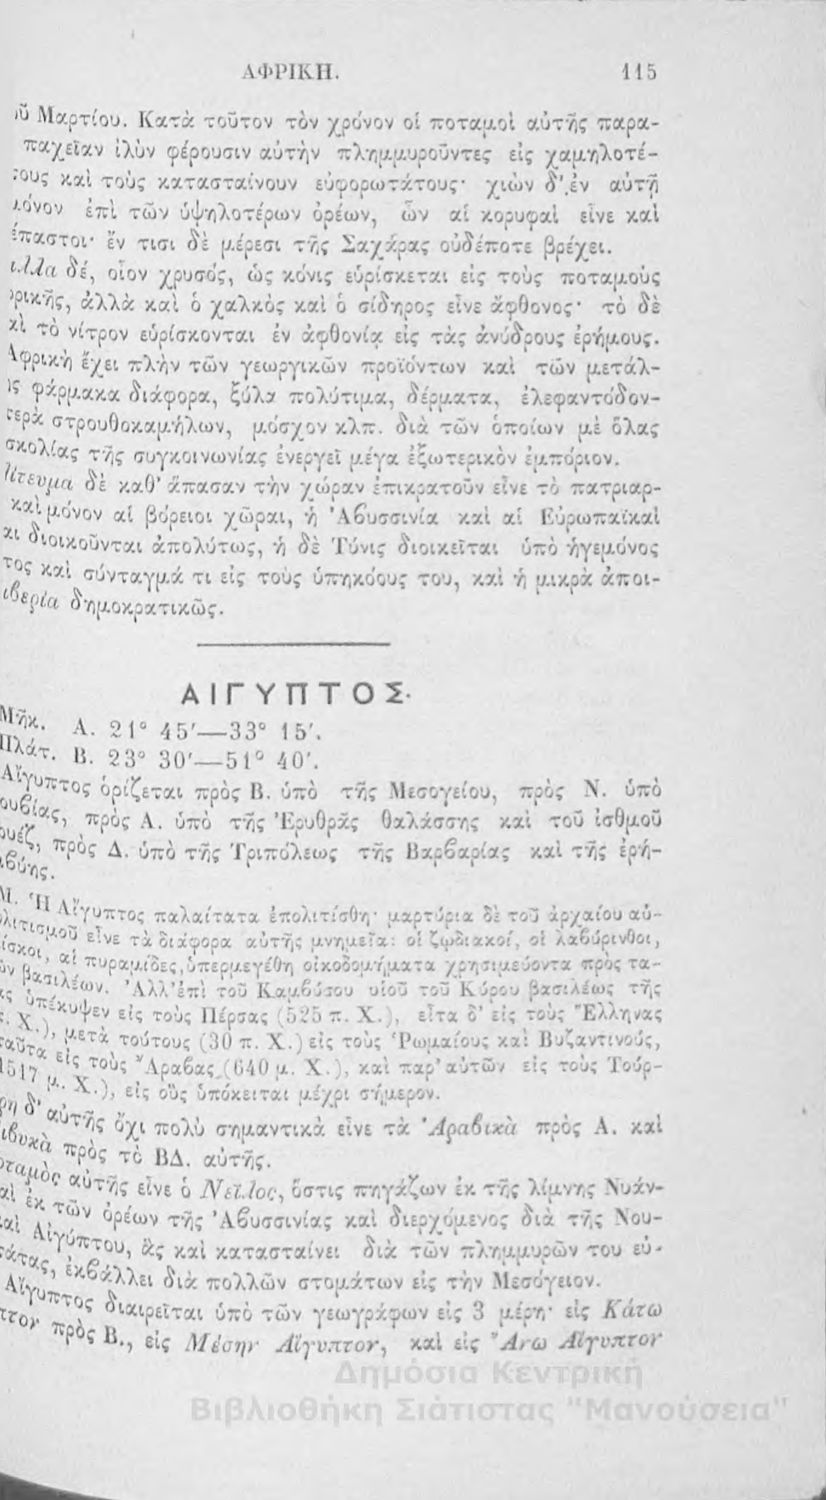 ΑΦΡΙΚΗ. 115
οῦ Μαρτίου. Κατὰ τοῦτον τὸν χρόνον οἱ ποταμοὶ αὐτῆς παρα-
παχεῖαν ἰλὺν φέρουσιν αὐτὴν πλημμυροῦντες εἰς χαμηλοτέ-
τους καὶ τοὺς κατασταίνουν εὐφορωτάτους· χιὼν δ' ἐν αὐτῇ
μόνον ἐπὶ τῶν ὑψηλοτέρων ὀρέων, ὧν αἱ κορυφαὶ εἶνε καὶ
έπαστοι· ἔν τισι δὲ μέρεσι τῆς Σαχάρας οὐδέποτε βρέχει.
ιλλα δέ, οἷον χρυσός, ὡς κόνις εὑρίσκεται εἰς τοὺς ποταμοὺς
ρικῆς, ἀλλὰ καὶ ὁ χαλκὸς καὶ ὁ σίδηρος εἶνε ἄφθονος· τὸ δὲ
κὶ τὸ νίτρον εὑρίσκονται ἐν ἀφθονίᾳ εἰς τὰς ἀνύδρους ἐρήμους.
Ἀφρικὴ ἔχει πλὴν τῶν γεωργικῶν προϊόντων καὶ τῶν μετάλ-
ις φάρμακα διάφορα, ξύλα πολύτιμα, δέρματα, ἐλεφαντόδον-
τερὰ στρουθοκαμήλων, μόσχον κλπ. διὰ τῶν ὁποίων μὲ ὅλας
σκολίας τῆς συγκοινωνίας ἐνεργεῖ μέγα ἐξωτερικὸν ἐμπόριον.
ίτευμα δὲ καθ' ἅπασαν τὴν χώραν ἐπικρατοῦν εἶνε τὸ πατριαρ-
καὶ μόνον αἱ βόρειοι χῶραι, ἡ Ἀβυσσινία καὶ αἱ Εὐρωπαϊκαὶ
αι διοικοῦνται ἀπολύτως, ἡ δὲ Τύνις διοικεῖται ὑπὸ ἡγεμόνος
τος καὶ σύνταγμά τι εἰς τοὺς ὑπηκόους του, καὶ ἡ μικρὰ ἀποι-
ιβερία δημοκρατικῶς.
ΑΙΓΥΠΤΟΣ.
Μῆκ. Α. 21° 45'—33° 15'.
Πλάτ. Β. 23° 30'—51° 40'.
Αἴγυπτος ὁρίζεται πρὸς Β. ὑπὸ τῆς Μεσογείου, πρὸς Ν. ὑπὸ
ουβίας, πρὸς Α. ὑπὸ τῆς Ἐρυθρᾶς θαλάσσης καὶ τοῦ ἰσθμοῦ
ουέζ, πρὸς Δ. ὑπὸ τῆς Τριπόλεως τῆς Βαρβαρίας καὶ τῆς ἐρή-
ιβύης.
Μ. Ἡ Αἴγυπτος παλαίτατα ἐπολιτίσθη· μαρτύρια δὲ τοῦ ἀρχαίου αὐ-
λιτισμοῦ εἶνε τὰ διάφορα αὐτῆς μνημεῖα: οἱ ζῳδιακοί, οἱ λαβύρινθοι,
ίσκοι, αἱ πυραμίδες, ὑπερμεγέθη οἰκοδομήματα χρησιμεύοντα πρὸς τα-
ῶν βασιλέων. Ἀλλ' ἐπὶ τοῦ Καμβύσου υἱοῦ τοῦ Κύρου βασιλέως τῆς
ας ὑπέκυψεν εἰς τοὺς Πέρσας (525 π. Χ.), εἶτα δ' εἰς τοὺς Ἕλληνας
. Χ.), μετὰ τούτους (30 π. Χ.) εἰς τοὺς Ῥωμαίους καὶ Βυζαντινούς,
ταῦτα εἰς τοὺς Ἄραβας (640 μ. Χ.), καὶ παρ' αὐτῶν εἰς τοὺς Τούρ-
1517 μ. Χ.), εἰς οὓς ὑπόκειται μέχρι σήμερον.
ρη δ' αὐτῆς ὄχι πολὺ σημαντικὰ εἶνε τὰ Ἀραβικὰ πρὸς Α. καὶ
ιβυκὰ πρὸς τὸ ΒΔ. αὐτῆς.
οταμὸς αὐτῆς εἶνε ὁ Νεῖλος, ὅστις πηγάζων ἐκ τῆς λίμνης Νυάν-
αὶ ἐκ τῶν ὀρέων τῆς Ἀβυσσινίας καὶ διερχόμενος διὰ τῆς Νου-
αὶ Αἰγύπτου, ἃς καὶ κατασταίνει διὰ τῶν πλημμυρῶν του εὐ-
τάτας, ἐκβάλλει διὰ πολλῶν στομάτων εἰς τὴν Μεσόγειον.
Αἴγυπτος διαιρεῖται ὑπὸ τῶν γεωγράφων εἰς 3 μέρη· εἰς Κάτω
πτον πρὸς Β., εἰς Μέσην Αἴγυπτον, καὶ εἰς Ἄνω Αἴγυπτον
Δημόσια Κεντρική
Βιβλιοθήκη Σιάτιστας "Μανούσεια"